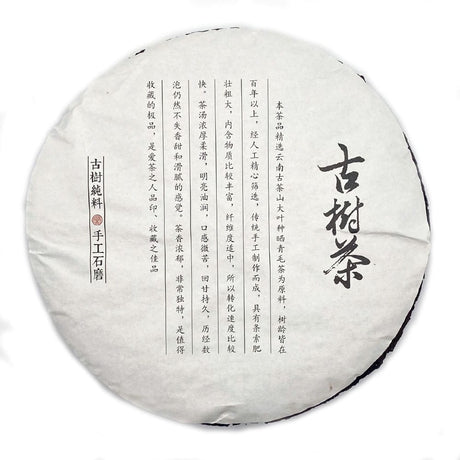 古樹茶
本茶品精选云南古茶山大叶种晒青毛茶为原料，树龄皆在
百年以上，经人工精心筛选，传统手工制作而成，具有条索肥
壮粗大，内含物质比较丰富，纤维度适中，所以转化速度比较
快。茶汤浓厚柔滑，明亮油润，口感微苦，回甘持久，历经数
泡仍然不失香甜和滑腻的感觉。茶香浓郁，非常独特，是值得
收藏的极品，是爱茶之人品印、收藏之佳品
古樹純料 手工石磨